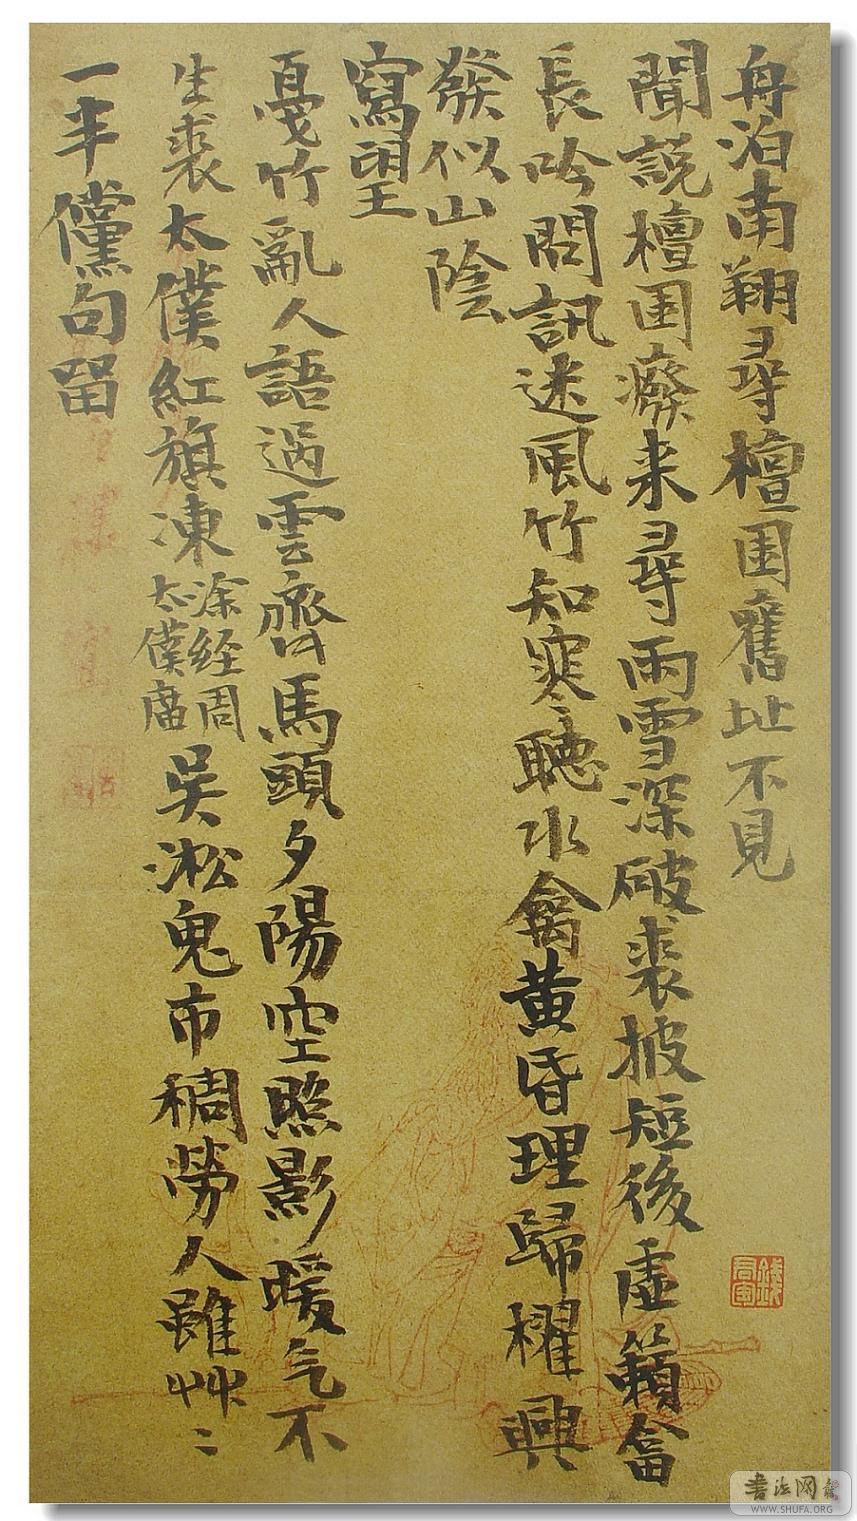 舟泊南翔尋檀園舊址不見
聞說檀園癈来尋雨雪深破裘披短後虛籟畣
長吟問訊迷風竹知寒聽水禽黄昏理歸櫂興
發似山陰
寫望
戛竹亂人語過雲齊馬頭夕陽空照影暖气不
生裘太僕紅旗凍涂經周太僕庿吳淞鬼市稠勞人雖艸〻
一半儻句留
書法网
WWW.SHUFA.ORG